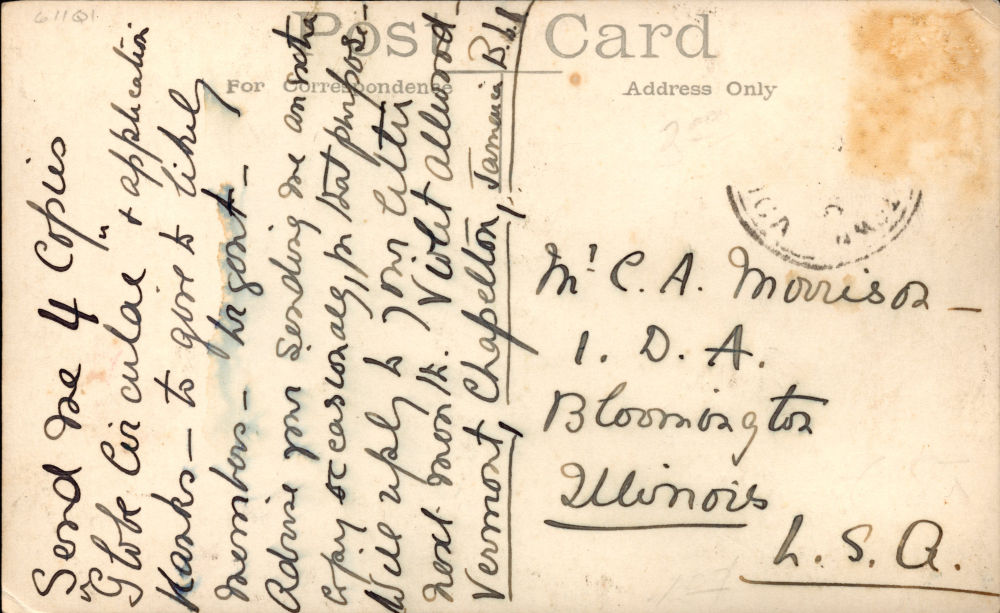 61101
Post Card
For Correspondence
Address Only
Send me 4 Copies
"Globe Circular" + application
blanks – to give to likely
members – Urgent –
Advise your sending me an extra
copy occasionaly, for that purpose –
Will reply to your letter
next month. Violet allwood –
Vermont, Chapelton, Jamaica B.W.I
Mr C. A. Morrison –
1. D. A.
Bloomington
Illinois
U. S. A.